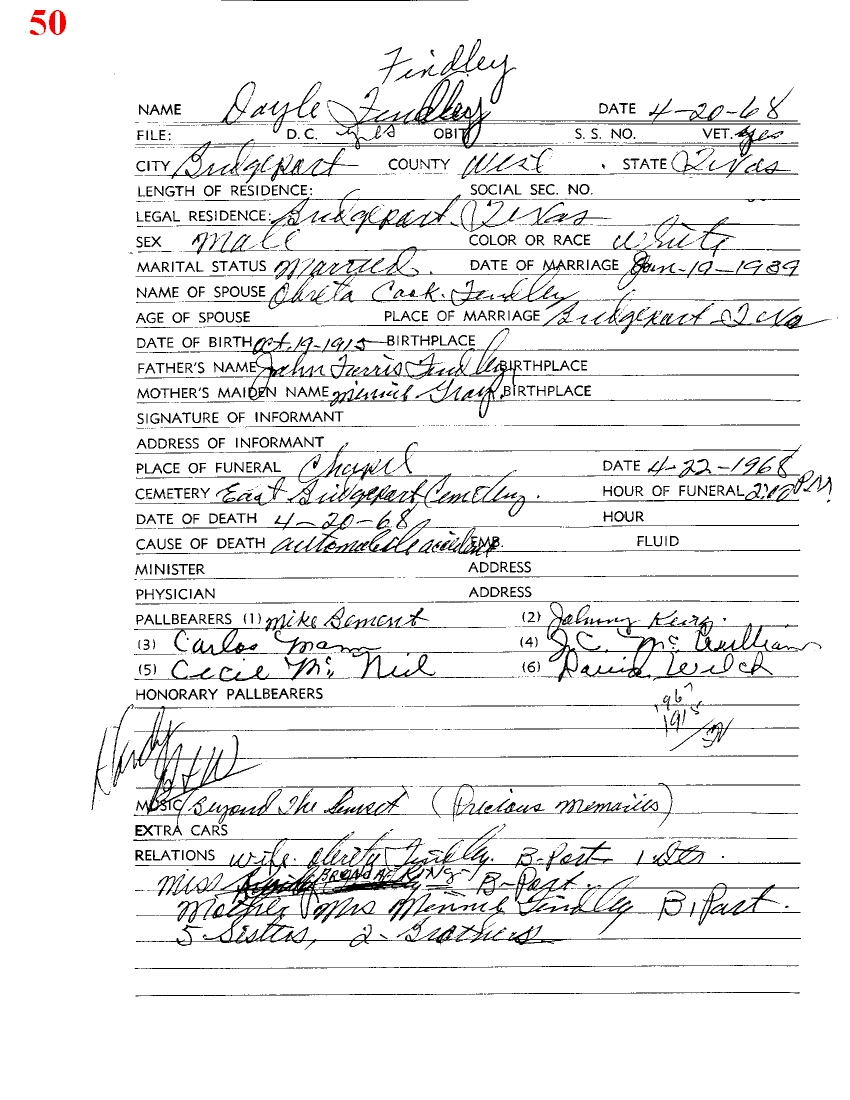 50
Findley
NAME Dayle Findley DATE 4-20-68
FILE: D.C. yes OBIT S. S. NO. VET. yes
CITY Bridgeport COUNTY Wise . STATE Texas
LENGTH OF RESIDENCE: SOCIAL SEC. NO.
LEGAL RESIDENCE: Bridgeport. Texas
SEX Male COLOR OR RACE White
MARITAL STATUS Married. DATE OF MARRIAGE Jan-19-1939
NAME OF SPOUSE Cook. Findley
AGE OF SPOUSE PLACE OF MARRIAGE Bridgeport Texas
DATE OF BIRTH Oct. 19-1915 BIRTHPLACE
FATHER'S NAME John Farris Findley BIRTHPLACE
MOTHER'S MAIDEN NAME Minnie Gray BIRTHPLACE
SIGNATURE OF INFORMANT
ADDRESS OF INFORMANT
PLACE OF FUNERAL Chapel DATE 4-22-1968
CEMETERY East Bridgeport Cemetery. HOUR OF FUNERAL 2:00 P.M
DATE OF DEATH 4-20-68 HOUR
CAUSE OF DEATH automobile accident EMB. FLUID
MINISTER ADDRESS
PHYSICIAN ADDRESS
PALLBEARERS (1) Mike Sement (2) Johnny King.
(3) Carlos Mann (4) J.C. Mc
(5) Cecil Mc Neil (6) David Welch
HONORARY PALLBEARERS
1967
1915
Hardy
MUSIC Beyond The Sunset (Precious Memories)
EXTRA CARS
RELATIONS Wife. Findley. B-Port. 1 Dtr.
Miss BRENDA KING B-Port.
Mother Mrs Minnie Findley B, Port.
5-Sisters, 2-Brothers